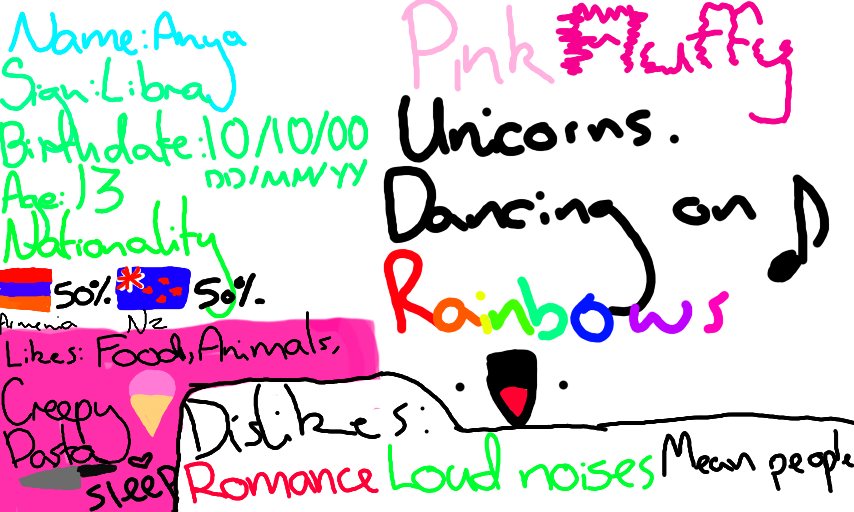 Name: Anya
Sign: Libra
Birthdate: 10/10/00
DD/MM/YY
Age: 13
Nationality
50% 50%.
Armenia NZ
Likes: Food, Animals,
Creepy
Pasta
sleep
Pink Fluffy
Unicorns.
Dancing on
Rainbows
Dislikes:
Romance Loud noises Mean people